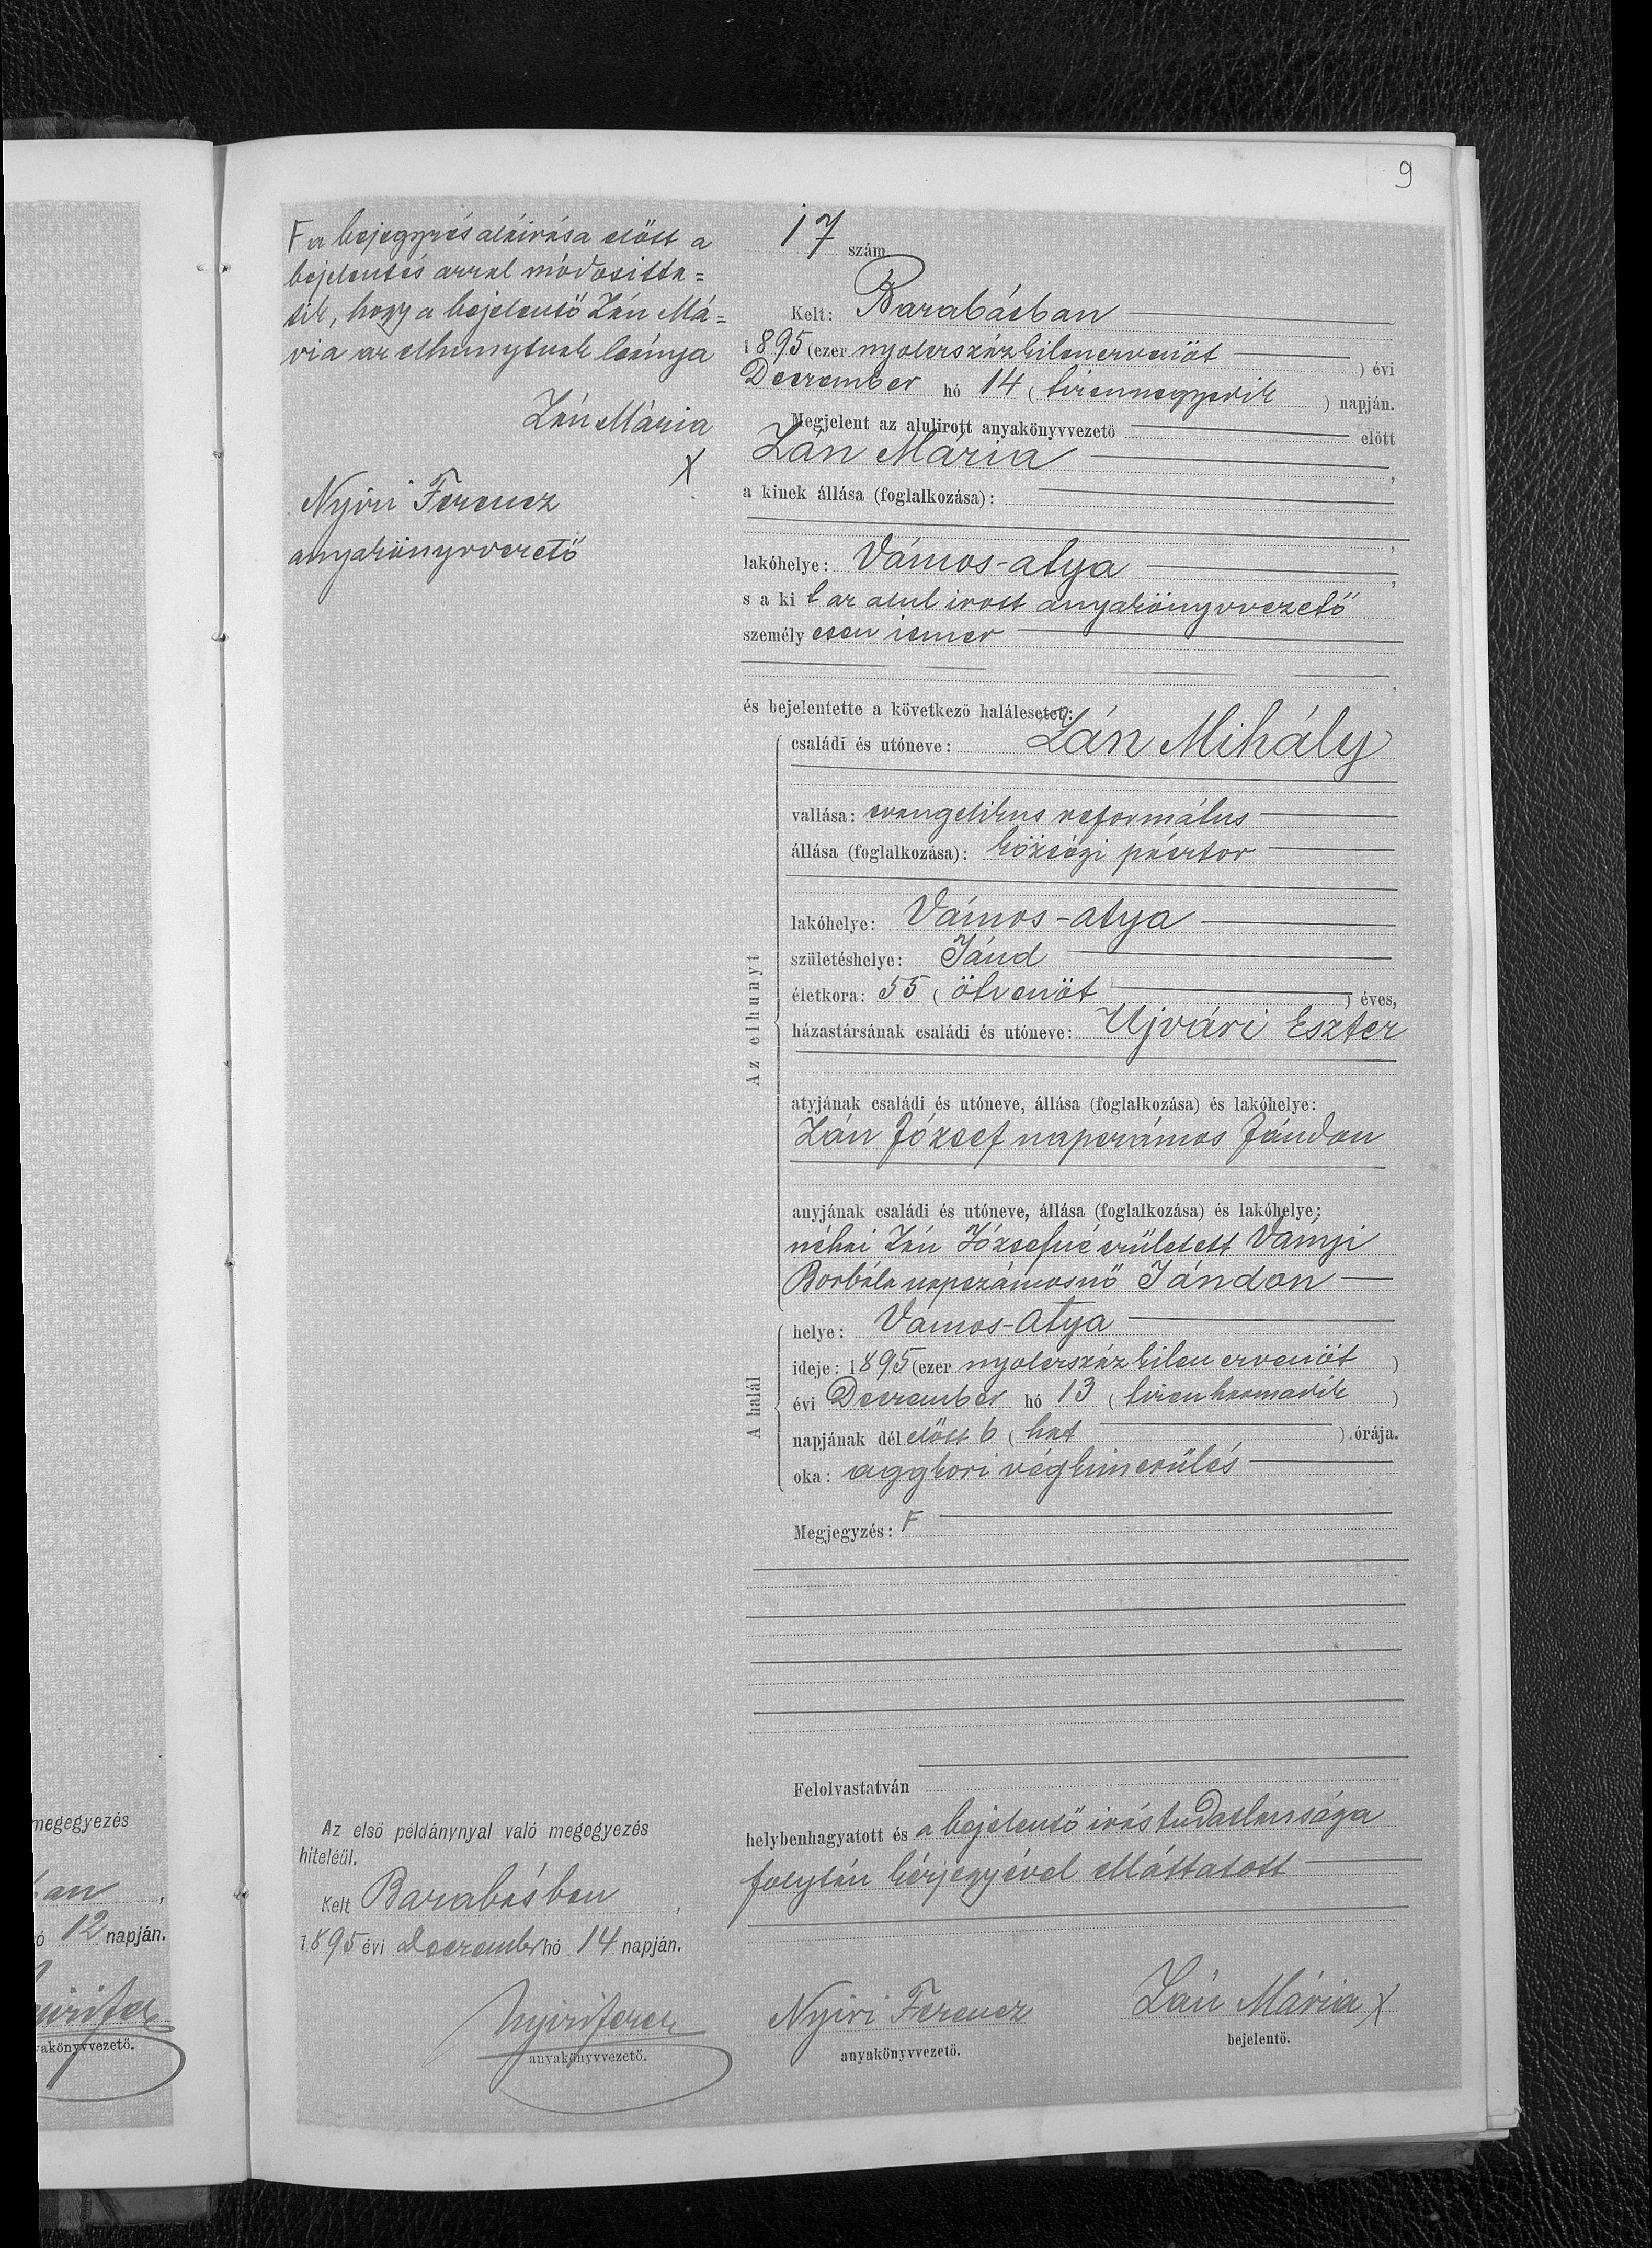 9
F a bejegyzés aláirása előtt a
bejelentés arral módositta-
tik, hogy a bejelentő Zán Má-
ria az elhunytnak leánya
Zán Mária
X
Nyiri Ferencz
anyakönyvvezető
17 szám
Kelt: Barabásban
1895 (ezer nyolczszázkilenczvenöt ) évi
Deczember hó 14 (tizennegyedik ) napján.
Megjelent az alulirott anyakönyvvezető előtt
Zán Mária ,
a kinek állása (foglalkozása):
,
lakóhelye: Vámos-atya ,
s a ki t az alul irott anyakönyvvezető
személy esen ismer
és bejelentette a következő halálesetet:
Az elhunyt
családi és utóneve: Zán Mihály
vallása: evangelikus református
állása (foglalkozása): községi pásztor
lakóhelye: Vámos-atya
születéshelye: Jánd
életkora: 55 (ötvenöt ) éves,
házastársának családi és utóneve: Ujvári Eszter
atyjának családi és utóneve, állása (foglalkozása) és lakóhelye:
Zán József napszámos Jándon
anyjának családi és utóneve, állása (foglalkozása) és lakóhelye:
néhai Zán Józsefné született
Borbála napszámosnő Jándon
A halál
helye: Vámos-Atya
ideje: 1895 (ezer nyolczszáz kilenczvenöt )
évi Deczember hó 13 (tizenharmadik )
napjának dél előtt 6 (hat ) órája.
oka: aggkori végkimerülés
Megjegyzés: F
Felolvastatván
helybenhagyatott és a bejelentő irástudatlansága
folytán kézjegyével elláttatott
Nyiri Ferencz
anyakönyvvezető.
Zán Mária X
bejelentő.
Az első példánynyal való megegyezés
hiteléül.
Kelt Barabásban ,
1895 évi Deczember hó 14 napján.
Nyiri Ferencz
anyakönyvvezető.
megegyezés
ban ,
hó 12 napján.
anyakönyvvezető.